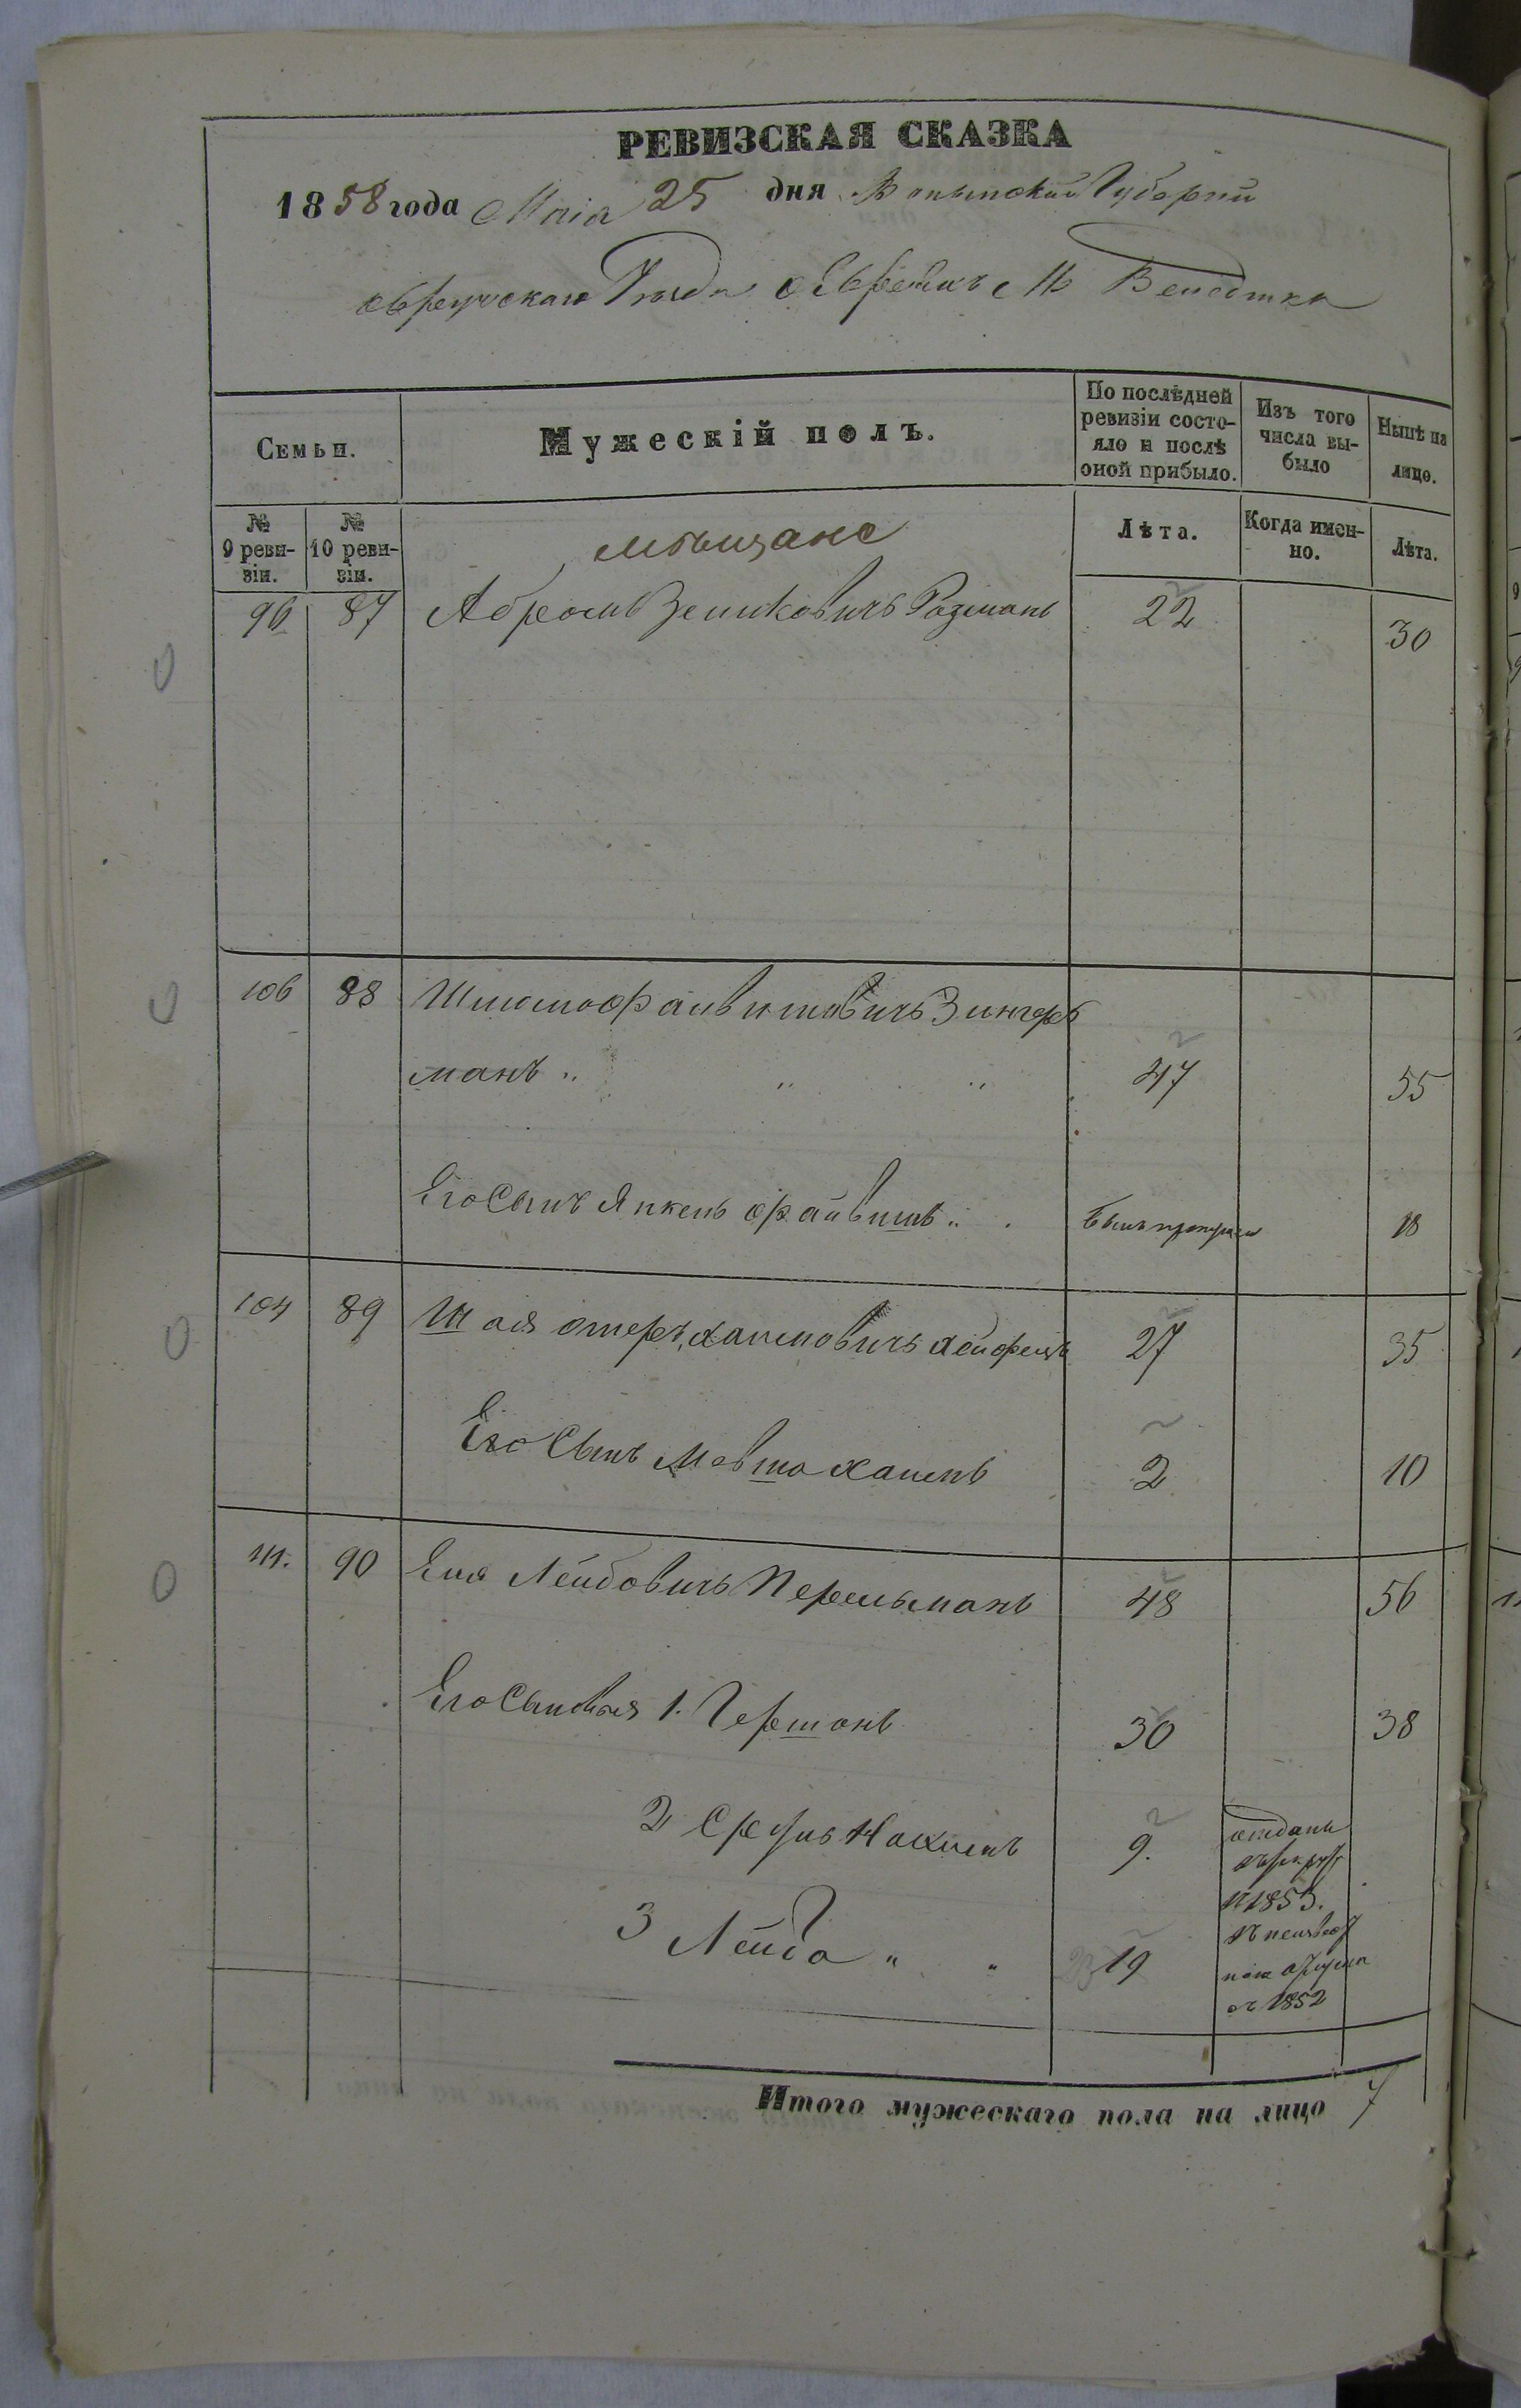 РЕВИЗСКАЯ СКАЗКА
1858 года Маія 25 дня Волынской Губерніи
Овручскаго Уѣзда о Евреяхъ М Веледника
Семьи.
Мужескій полъ.
По послѣдней ревизіи состояло и послѣ оной прибыло.
Изъ того числа выбыло
Нынѣ на лицо.
№ 9 ревизіи.
№ 10 ревизіи.
мѣщане
Лѣта.
Когда именно.
Лѣта.
96 87 Абрамъ Зельковичъ Розманъ 22 30
106 88 Шлиома Файвишовичъ Зингер
манъ " " " 47 55
Его Сынъ Янкель Файвишъ " былъ пропущен 18
104 89 Шая отеръ Хаимовичъ Хейфецъ 27 35
Его Сынъ Мовша Хаимъ 2 10
111. 90 Еля Лейбовичъ Перельманъ 48 56
Его Сыновья 1. Гершонъ 30 38
2 Сруль Нахимъ 9. отданъ
въ рекруты
в 1853.
3 Лейба " " 19 в неизвест
ной отлучке
с 1852
Итого мужескаго пола на лицо 7